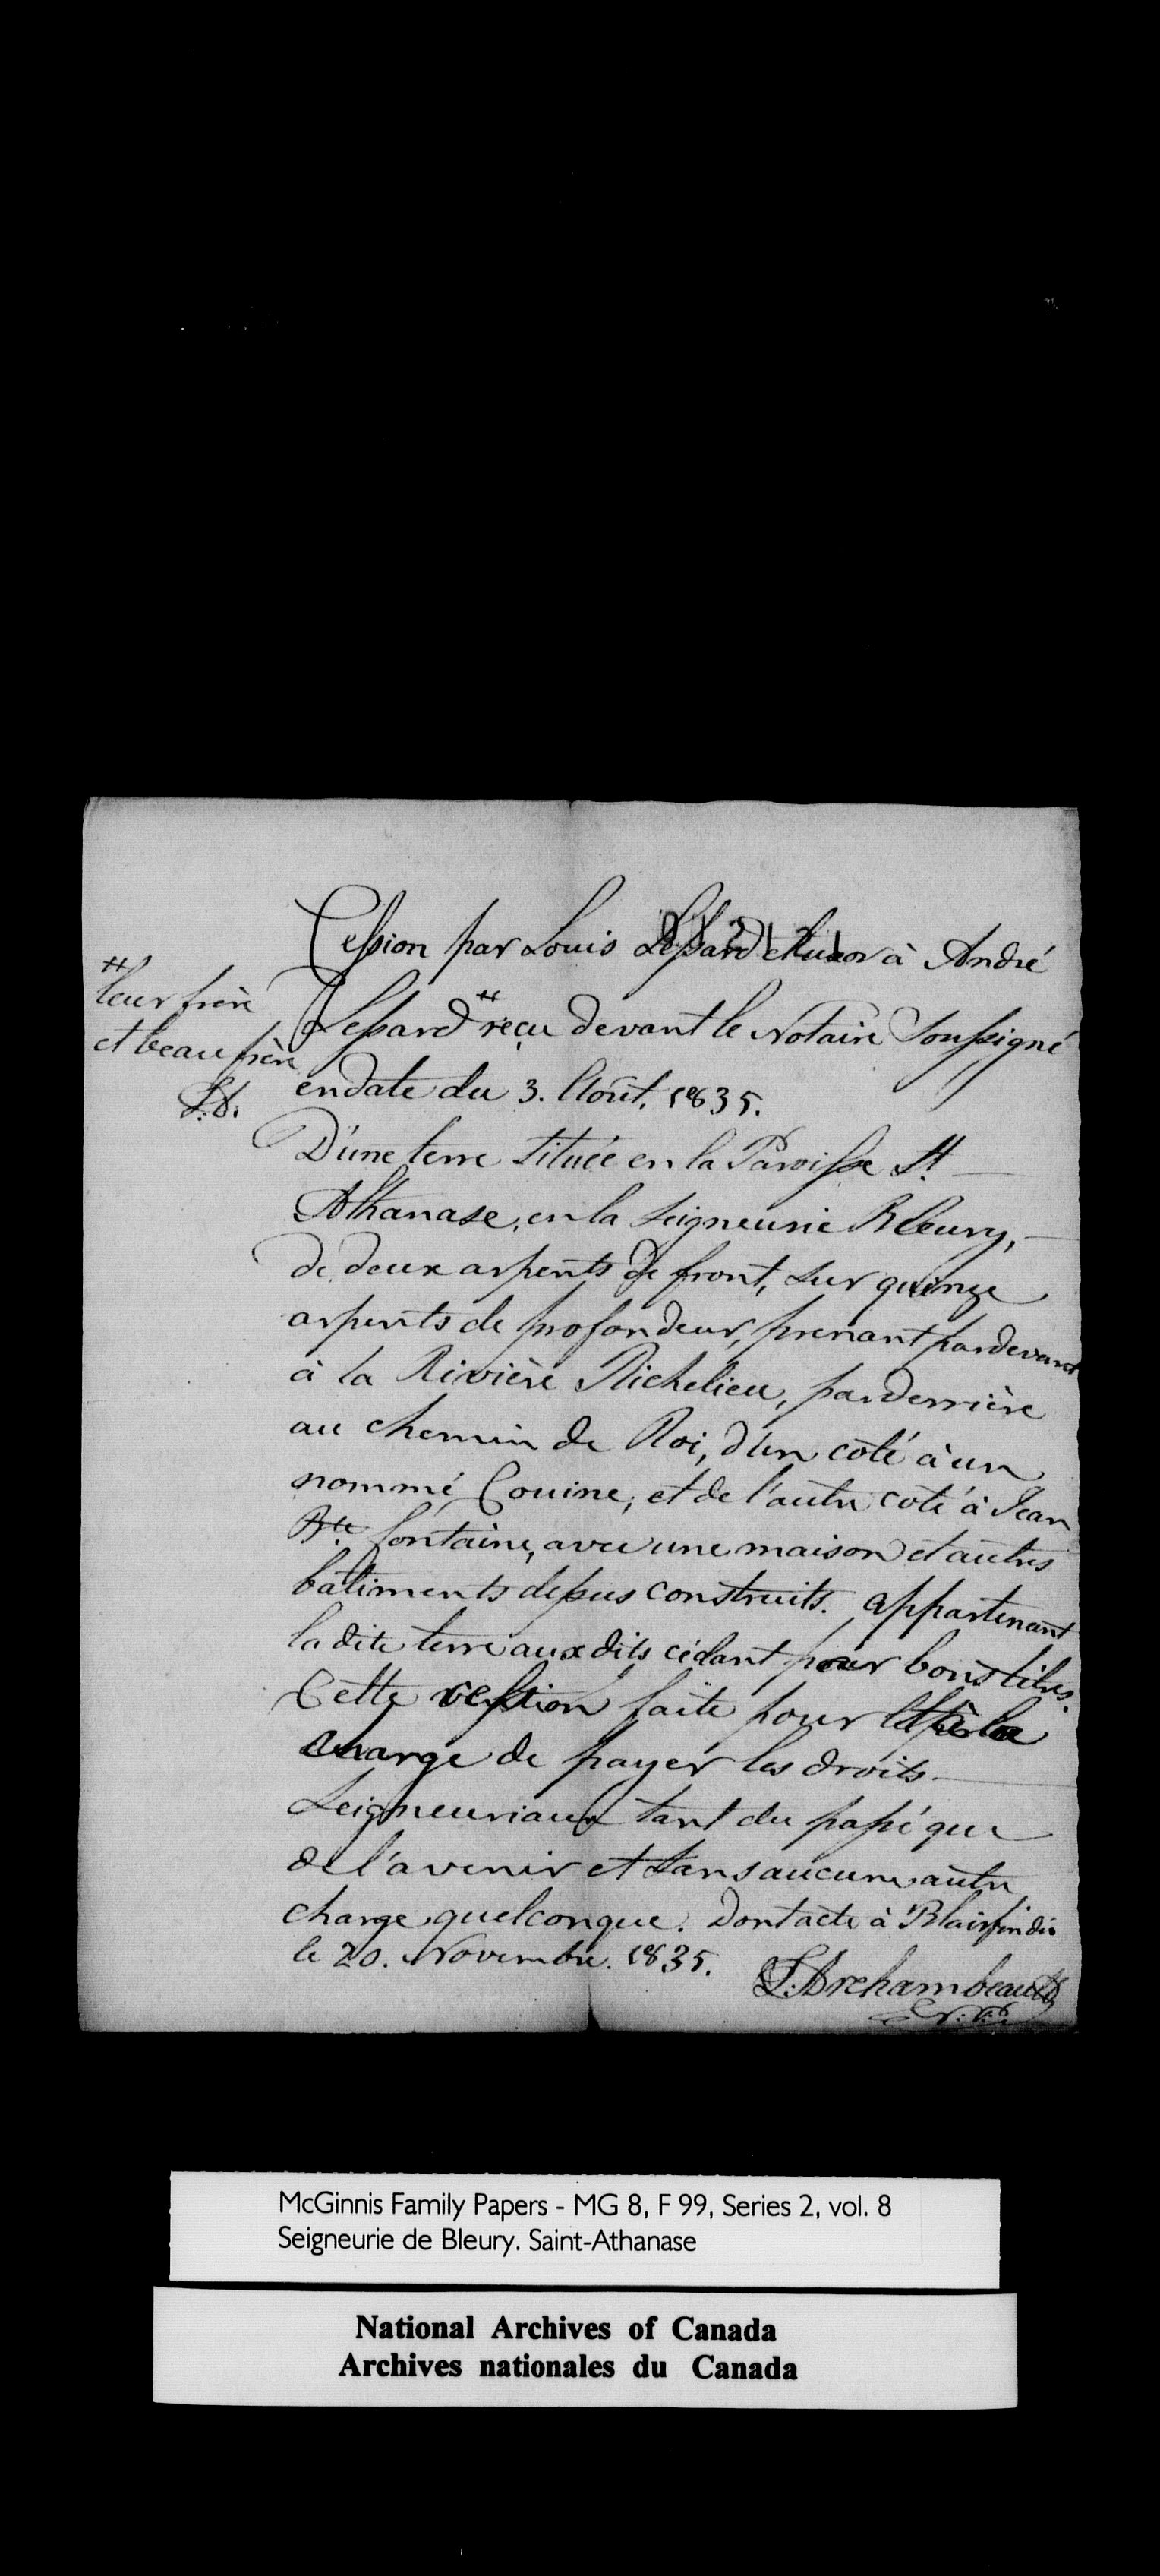 Cession par Louis Lessard et uxor à André
Lessard ** reçu devant le Notaire Soussigné
** leur frère
et beau frère
L.A.
en date du 3. Août. 1835.
D'une terre située en la Paroisse St.
Athanase, en la Seigneurie Bleury,
de deux arpents de front, sur quinze
arpents de profondeur, prenant pardevant
à la Rivière Richelieu, par derrière
au chemin de Roi, d'un côté à un
nommé Couine, et de l'autre côté à Jean
Bte. fontaine, avec une maison et autres
bâtiments dessus construits. appartenant
la dite terre aux dits cédant pour bons titres.
Cette cession faite pour et à la
charge de payer les droits
Seigneuriaux tant du passé que
de l'avenir et sans aucune autre
charge quelconque. Dont acte à Blairfindie
le 20. Novembre. 1835.
L. Archambeault
N.P.
McGinnis Family Papers - MG 8, F 99, Series 2, vol. 8
Seigneurie de Bleury. Saint-Athanase
National Archives of Canada
Archives nationales du Canada